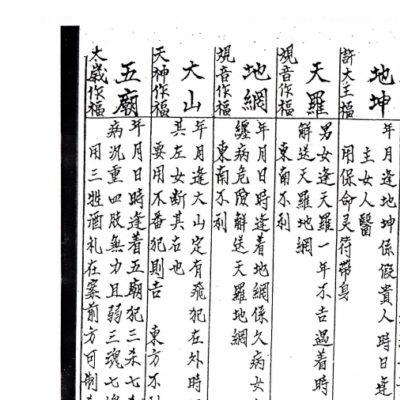 地坤
許大主福
年月逢地坤係假貴人時日逢
主女人醫
用保命灵符帶身
天羅
觀音作福
男女逢天羅一年不吉過着時
解送天羅地網
東南不利
地網
觀音作福
年月日時逢着地網係久病女
纏病危險解送天羅地網
東南不利
大山
天神作福
年月逢大山定有飛犯在外時
其左女斷其右也
要用不番犯則吉 東方不
五廟
太歲作福
年月日時逢着五廟犯三杀七
病沉重四肢無力且弱三魂七
用三牲酒礼在寨前方可制